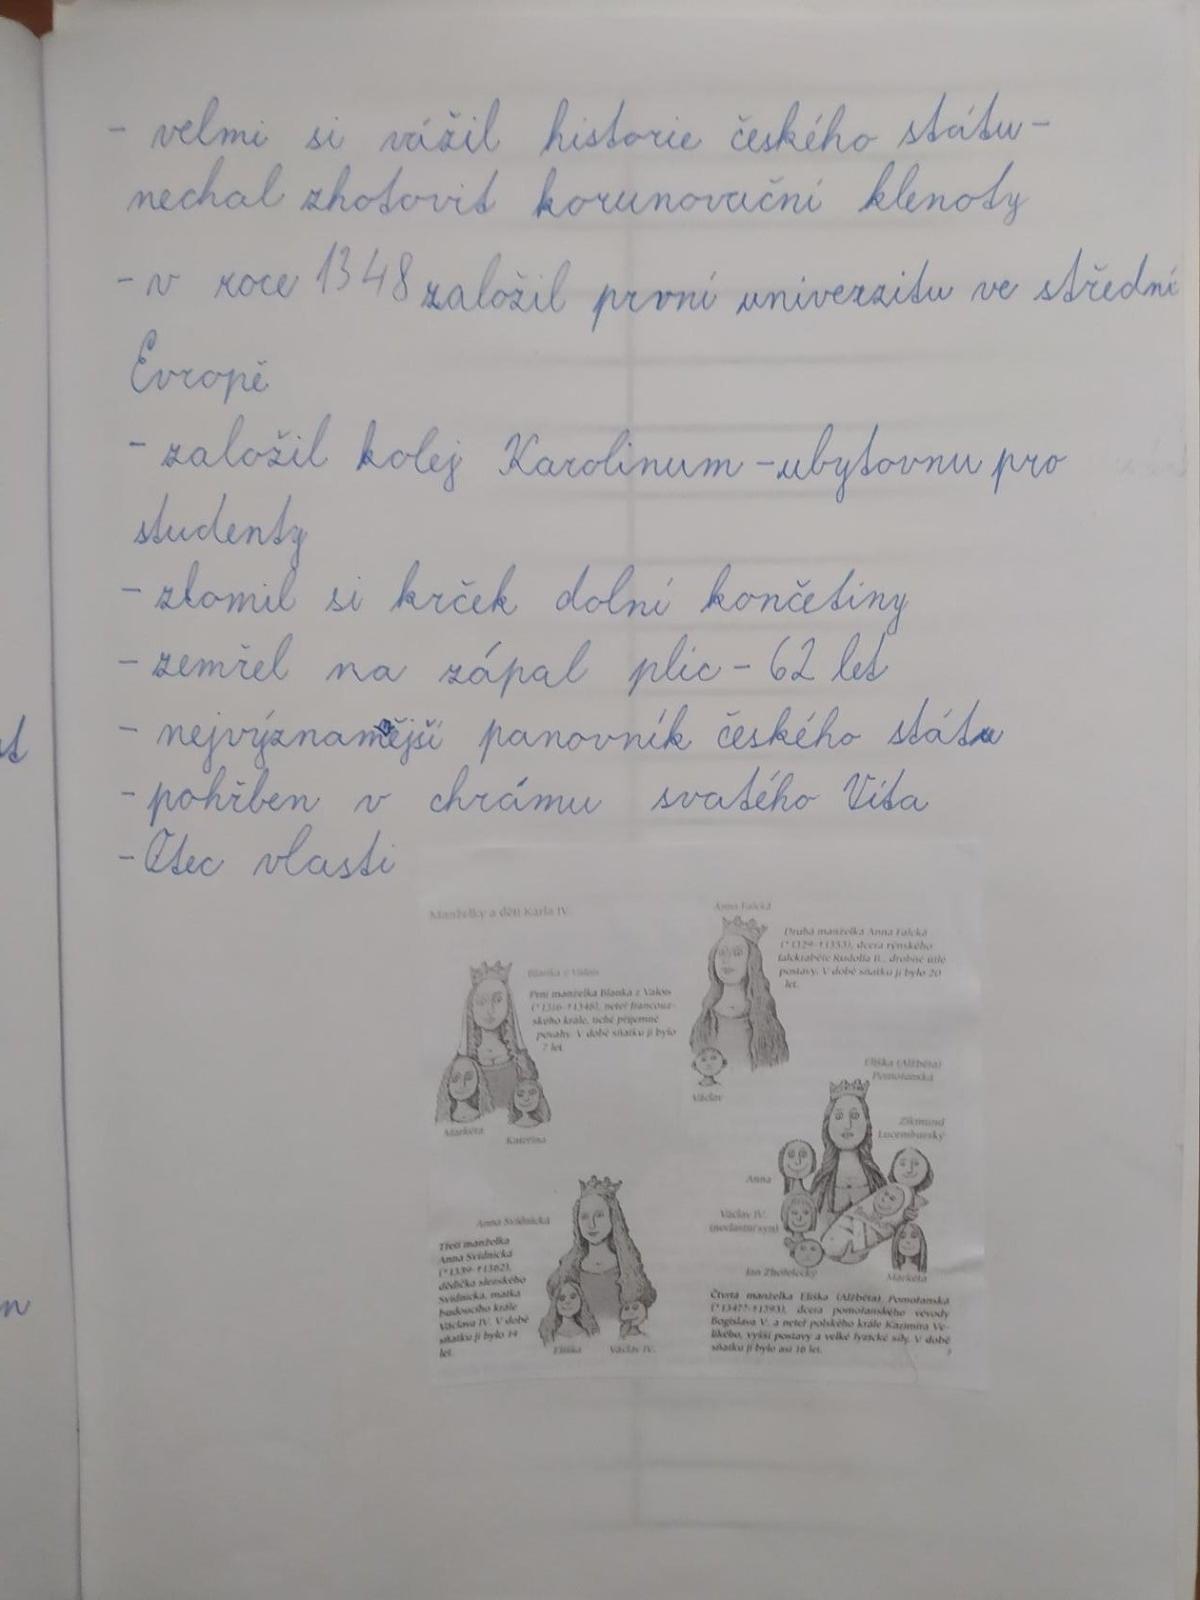 - velmi si vážil historie českého státu -
nechal zhotovit korunovační klenoty
- v roce 1348 založil první univerzitu ve střední
Evropě
- založil kolej Karolinum - ubytovnu pro
studenty
- zlomil si krček dolní končetiny
- zemřel na zápal plic - 62 let
- nejvýznamější panovník českého státu
- pohřben v chrámu svatého Víta
- Otec vlasti
Manželky a děti Karla IV.
Blanka z Valois
První manželka Blanka z Valois
(*1316-†1348), neteř francouz-
ského krále, tiché příjemné
povahy. V době sňatku jí bylo
7 let.
Markéta
Kateřina
Anna Falcká
Druhá manželka Anna Falcká
(*1329-†1353), dcera rýnského
falckraběte Rudolfa II., drobné útlé
postavy. V době sňatku jí bylo 20
let.
Václav
Anna Svídnická
Třetí manželka
Anna Svídnická
(*1339-†1362),
dědička slezského
Svídnicka, matka
budoucího krále
Václava IV. V době
sňatku jí bylo 14
let.
Eliška
Václav IV.
Eliška (Alžběta)
Pomořanská
Zikmund
Lucemburský
Anna
Václav IV.
(nevlastní syn)
Jan Zhořelecký
Markéta
Čtvrtá manželka Eliška (Alžběta) Pomořanská
(*1347?-†1393), dcera pomořanského vévody
Bogislava V. a neteř polského krále Kazimíra Ve-
likého, vyšší postavy a velké fyzické síly. V době
sňatku jí bylo asi 16 let.